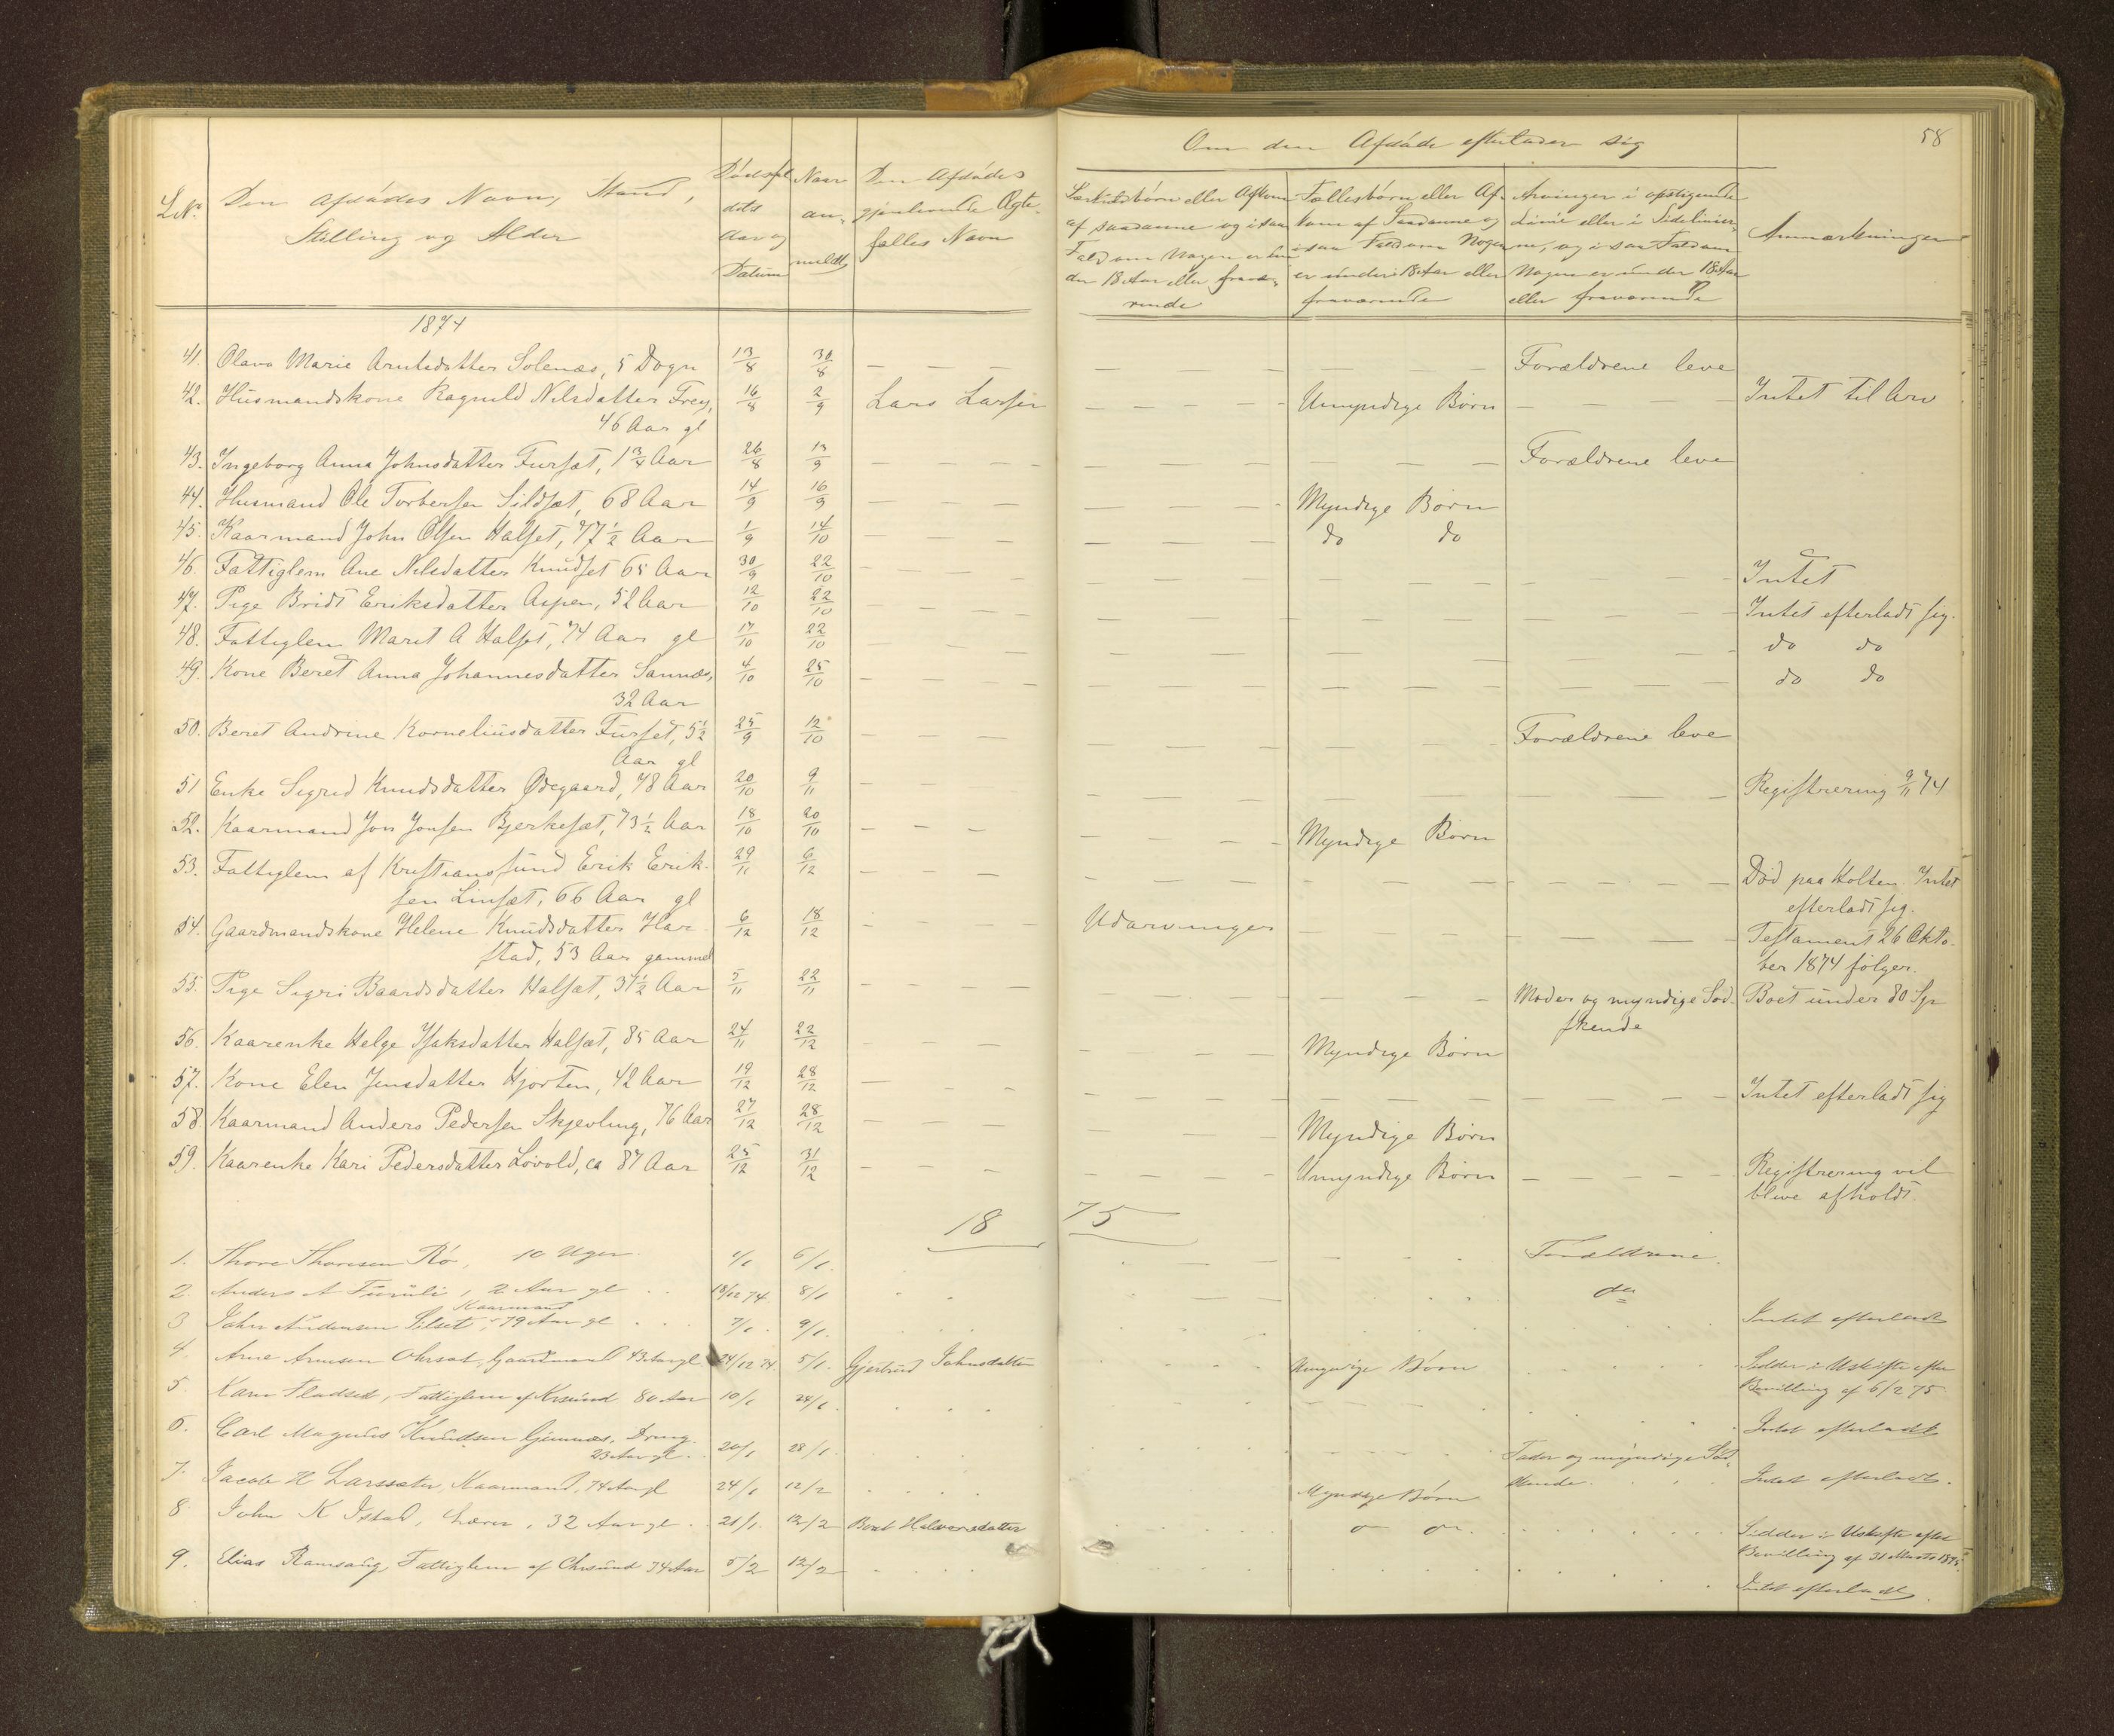 58
Om den Afdøde efterlader sig
L.No. Den afdødes Navn, Stand, Stilling og Alder
Dødsfaldets Aar og Datum
Naar anmeldt
Den Afdødes gjenlevende Ægtefælles Navn
Særkuldsbørn eller Afkom af saadanne og i saa Fald om Nogen er under 18 Aar eller fraværende
Fællesbørn eller Afkom af Saadanne og i saa Fald om Nogen er under 18 Aar eller fraværende
Arvinger i opstigende Linie eller i Sidelinierne, og i saa Fald om Nogen er under 18 Aar eller fraværende
Anmærkninger
1874
41. Olava Marie Arntsdatter Solenæs, 5 Døgn 13/8 30/8 — — — Forældrene leve
42. Husmandskone Ragnild Nilsdatter Frey, 16/8 2/9 Lars Larsen — — — Umyndige Børn — — — Intet til Arv
46 Aar gl
43. Ingeborg Anna Johnsdatter Furset, 1 3/4 Aar 26/8 13/9 — — — Forældrene leve
44. Husmand Ole Torbersen Sildset, 68 Aar 14/9 16/9 — — — Myndige Børn
45. Kaarmand John Olsen Halset, 77 1/2 Aar 1/9 14/10 — — — do do
46. Fattiglem Ane Nilsdatter Knudset 65 Aar 30/9 22/10 — — — Intet
47. Pige Bridt Eriksdatter Aspen, 52 Aar 12/10 22/10 — — — Intet efterladt sig.
48. Fattiglem Marit A Halset, 74 Aar gl 17/10 22/10 — — — do do
49. Kone Beret Anna Johannesdatter Sannæs, 4/10 25/10 — — — do do
32 Aar
50. Beret Andrine Korneliusdatter Furset, 5 1/2 25/9 12/10 — — — Forældrene leve
Aar gl
51 Enke Sigrid Knudsdatter Ødegaard, 78 Aar 20/10 9/11 — — — Registrering 9/11 74
52. Kaarmand Jon Jonsen Bjerkeset, 73 1/2 Aar 18/10 20/10 — — — Myndige Børn
53. Fattiglem af Kristianssund Erik Erik- 29/11 6/12 — — — Død paa Holten. Intet
sen Linset, 66 Aar gl efterladt sig.
54. Gaardmandskone Helene Knudsdatter Har- 6/12 18/12 — — Udarvinger — — — Testament 26 Okto-
stad, 53 Aar gammel ber 1874 følger.
55. Pige Sigri Baardsdatter Halset, 37 1/2 Aar 5/11 22/11 — — — Moder og myndige Sød- Boet under 80 Spr
skende
56. Kaarenke Helge Isaksdatter Halset, 85 Aar 24/11 22/12 — — — Myndige Børn
57. Kone Elen Jensdatter Hjorten, 42 Aar 19/12 28/12 — — — Intet efterladt sig
58. Kaarmand Anders Pedersen Skjevling, 76 Aar 27/12 28/12 — — — Myndige Børn
59. Kaarenke Kari Pedersdatter Løvold, ca 87 Aar 25/12 31/12 — — — Umyndige Børn — — — Registrering vil
blive afholdt.
1875
1. Thore Thoresen Rø, 10 Uger 1/1 6/1. Forældrene.
2. Anders A Furuli, 2 Aar gl 18/12 74 8/1 do
3 John Andersen Silset, Kaarmand 79 Aar gl 7/1. 9/1. Intet efterladt
4. Arne Arnesen Ohrset, Gaardmand 43 Aar gl 24/12 74 5/1. Gjertrud Johnsdatter Umyndige Børn Sidder i Uskifte efter
Bevilling af 6/2 75
5 Karen Fladset, Fattiglem af Krsund 80 Aar 10/1 24/1 Intet efterladt
6. Carl Magnus Knudsen Gimnæs, Dreng
23 Aar gl. 20/1 28/1. Fader og myndige Sød-
skende. Intet efterladt.
7. Jacob H Larssæter, Kaarmand, 74 Aar gl 24/1 12/2 Myndige Børn
8 John K Istad, Lærer, 32 Aar gl 21/1. 12/2 Beret Halvorsdatter Sidder i Uskifte efter
Bevilling af 31 Marts 1875
9. Elias Ramsaug, Fattiglem af Chrsund 74 Aar 5/2 12/2 Intet efterladt.